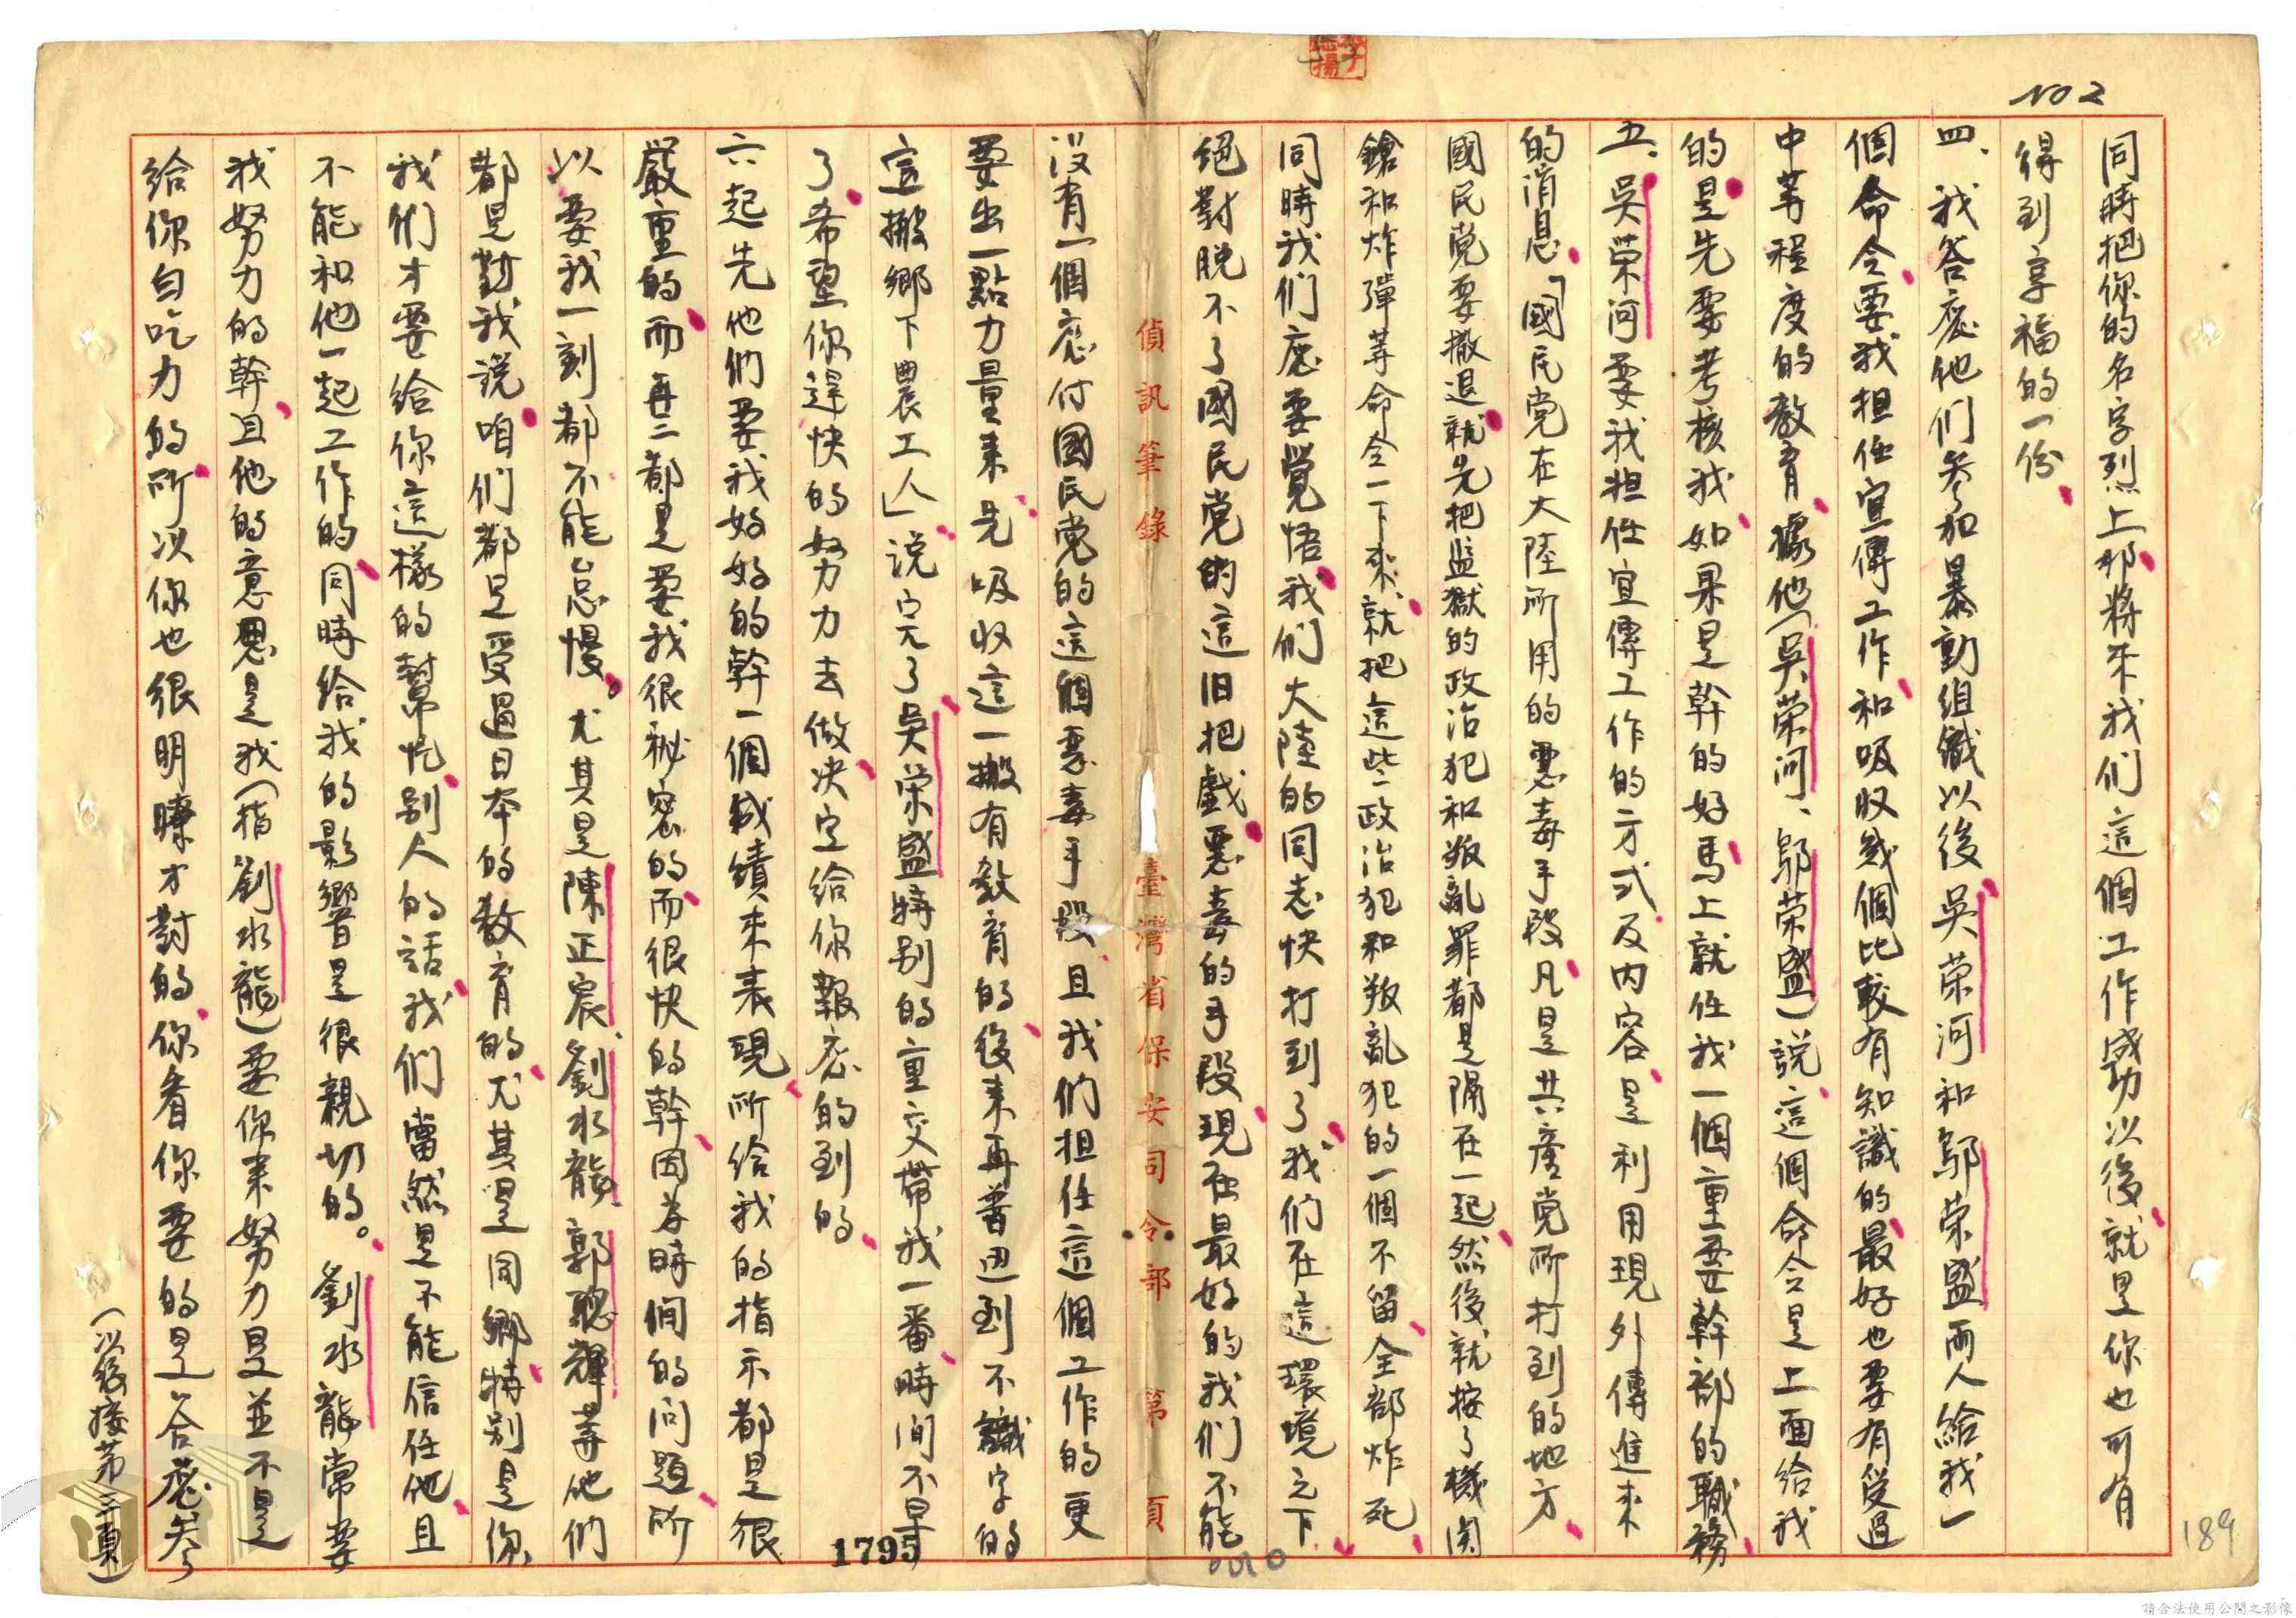 NO 2
同時把你的名字烈上那將來我们這個工作成功以後就是你也可有
得到享福的一份
四、我答應他们參加暴動組織以後吳荣河和鄔荣盛兩人給我一
個命令要我担任宣傳工作和吸收幾個比較有知識的最好也要有受過
中等程度的教育據他(吳荣河、鄔荣盛)說這個命令是上面給我
的是先要考核我如果是幹的好馬上就任我一個重要幹部的職務
五、吳荣河要我担任宣傳工作的方式及内容是利用現外傳進來
的消息「國民党在大陸所用的惡毒手段凡是共產党所打到的地方
國民党要撤退就先把監獄的政治犯和叛亂罪都是隔在一起然後就按了機関
鎗和炸彈等命令一下來就把這些政治犯和叛亂犯的一個不留全部炸死
同時我们應要覺悟我们大陸的同志快打到了我们在這環境之下
絕對脱不了國民党的這旧把戲惡毒的手段現在最好的我们不能
偵訊筆錄 臺灣省保安司令部 第 頁
沒有一個應付國民党的這個惡毒手段且我们担任這個工作的更
要出一點力量來先吸收這一搬有教育的後來再普迅到不識字的
這搬鄉下農工人」說完了吳荣盛特别的重交帶我一番時间不早
了希望你趕快的努力去做决定給你報应的到的
六起先他們要我好好的幹一個成績來表現所給我的指示都是很
嚴重的而再三都是要我很秘密的而很快的幹因为時间的问題所
以要我一刻都不能怠慢。尤其是陳正宸、劉水龍、郭聰輝等他们
都是對我說咱们都是受過日本的教育的尤其是同鄉特别是你
我们才要給你這樣的幫忙别人的話我们當然是不能信任他且
不能和他一起工作的同時給我的影響是很親切的。劉水龍常要
我努力的幹且他的意思是我(指劉水龍)要你來努力是並不是
給你白吃力的所以你也很明瞭才對的你看你要的是答應參
(以後接第三頁)
1795
0010
189
請合法使用公開之影像